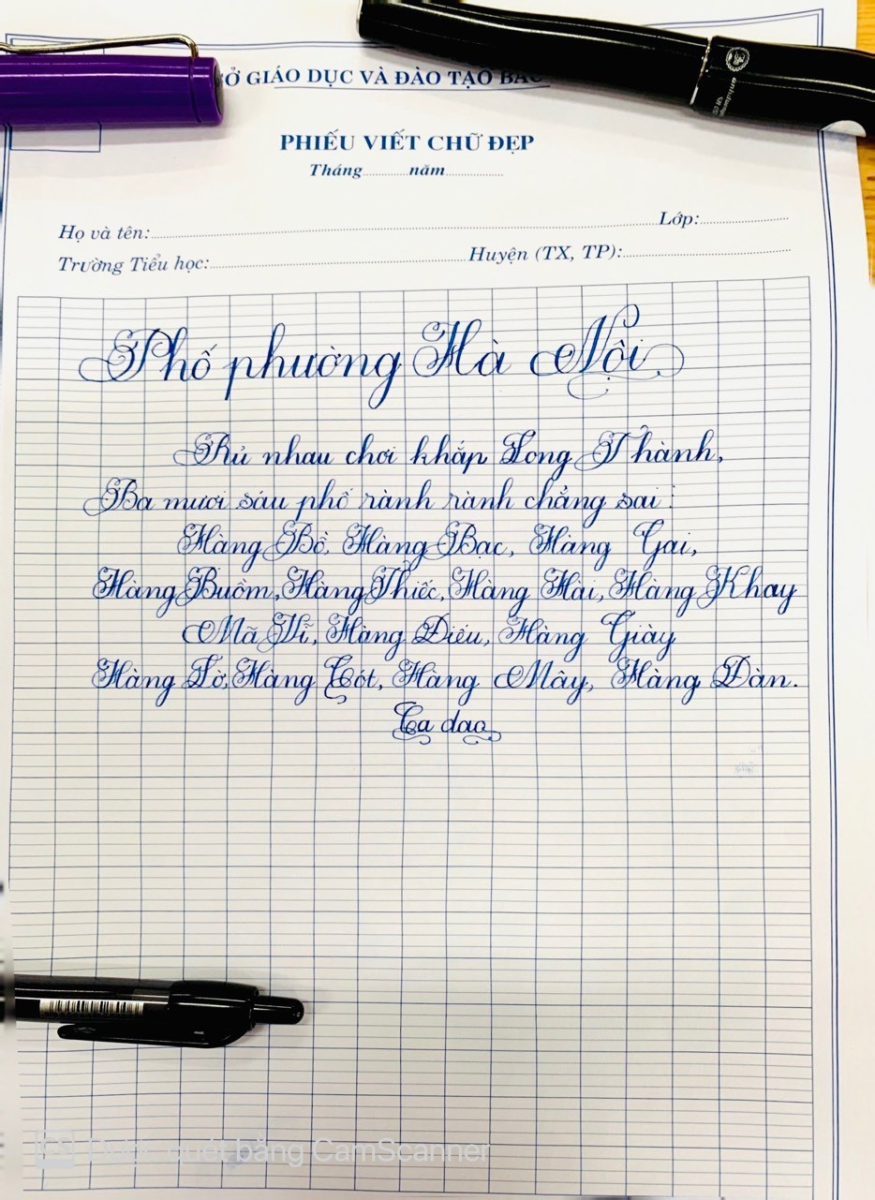 Ở GIÁO DỤC VÀ ĐÀO TẠO BẮC
PHIẾU VIẾT CHỮ ĐẸP
Tháng năm
Họ và tên: Lớp:
Trường Tiểu học: Huyện (TX, TP):
Phố phường Hà Nội
Rủ nhau chơi khắp Long Thành,
Ba mươi sáu phố rành rành chẳng sai:
Hàng Bồ, Hàng Bạc, Hàng Gai,
Hàng Buồm, Hàng Thiếc, Hàng Hài, Hàng Khay
Mã Vĩ, Hàng Điếu, Hàng Giày
Hàng Lờ, Hàng Cót, Hàng Mây, Hàng Đàn.
Ca dao
CS Được quét bằng CamScanner